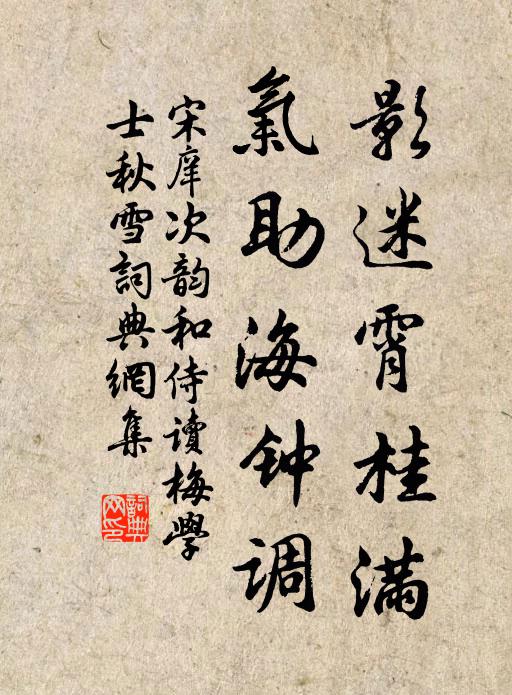 影迷霄桂满
氣助海钟调
宋庠次韵和侍读梅學
士秋雪詞典網集
詞典网印